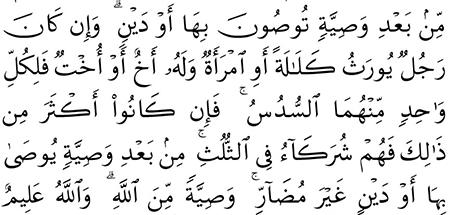 مِّنۢ بَعْدِ وَصِيَّةٍ تُوصُونَ بِهَآ أَوْ دَيْنٍ ۗ وَإِن كَانَ
رَجُلٌ يُورَثُ كَلَـٰلَةً أَوِ ٱمْرَأَةٌ وَلَهُۥٓ أَخٌ أَوْ أُخْتٌ فَلِكُلِّ
وَٰحِدٍ مِّنْهُمَا ٱلسُّدُسُ ۚ فَإِن كَانُوٓا۟ أَكْثَرَ مِن
ذَٰلِكَ فَهُمْ شُرَكَآءُ فِى ٱلثُّلُثِ ۚ مِنۢ بَعْدِ وَصِيَّةٍ يُوصَىٰ
بِهَآ أَوْ دَيْنٍ غَيْرَ مُضَآرٍّ ۚ وَصِيَّةً مِّنَ ٱللَّهِ ۗ وَٱللَّهُ عَلِيمٌ